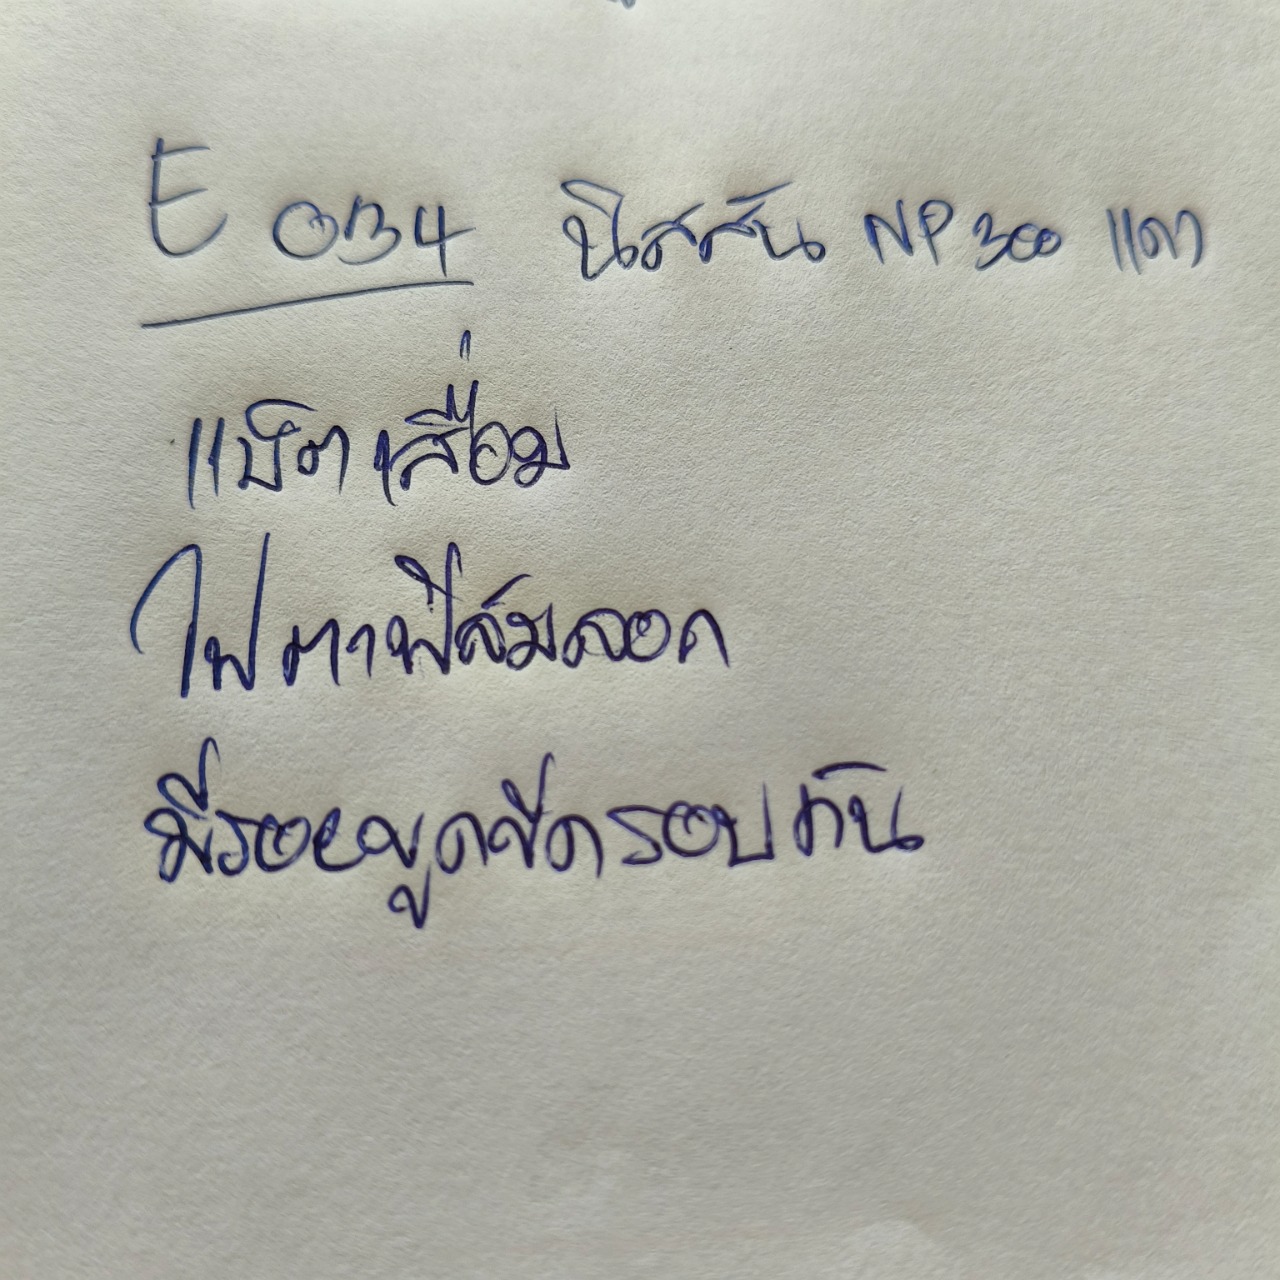 E 034 นิสสัน NP 300
แบ็ตเสื่อม
ไฟตาฟิล์มลอก
มีรอยขูดขีดรอบคัน